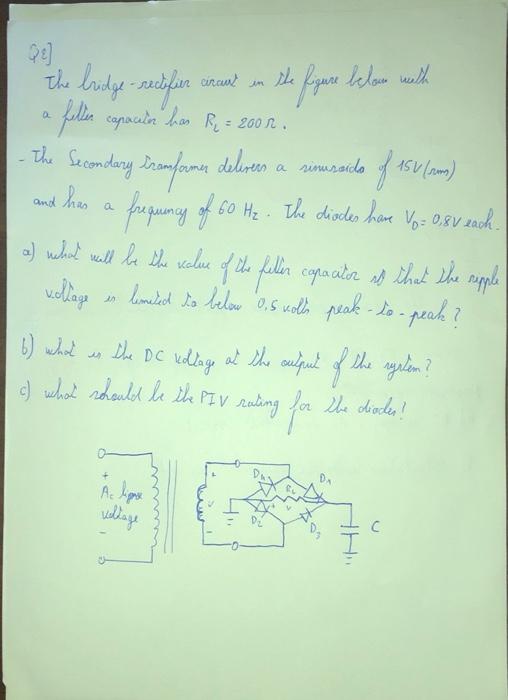 Q2]
The bridge-rectifier circuit in the figure below with
a filter capacitor has RL = 200 Ω.
- The Secondary transformer delivers a sinusoida of 15V (rms)
and has a frequency of 60 Hz. The diodes have VD = 0,8V each.
a) what will be the value of the filter capacitor so that the ripple
voltage is limited to below 0,5 volts peak-to-peak?
b) what is the DC voltage at the output of the system?
c) what should be the PIV rating for the diodes?
+
Ac
voltage
-
+
V
-
D4
D1
RL
+ V -
D2
D3
C